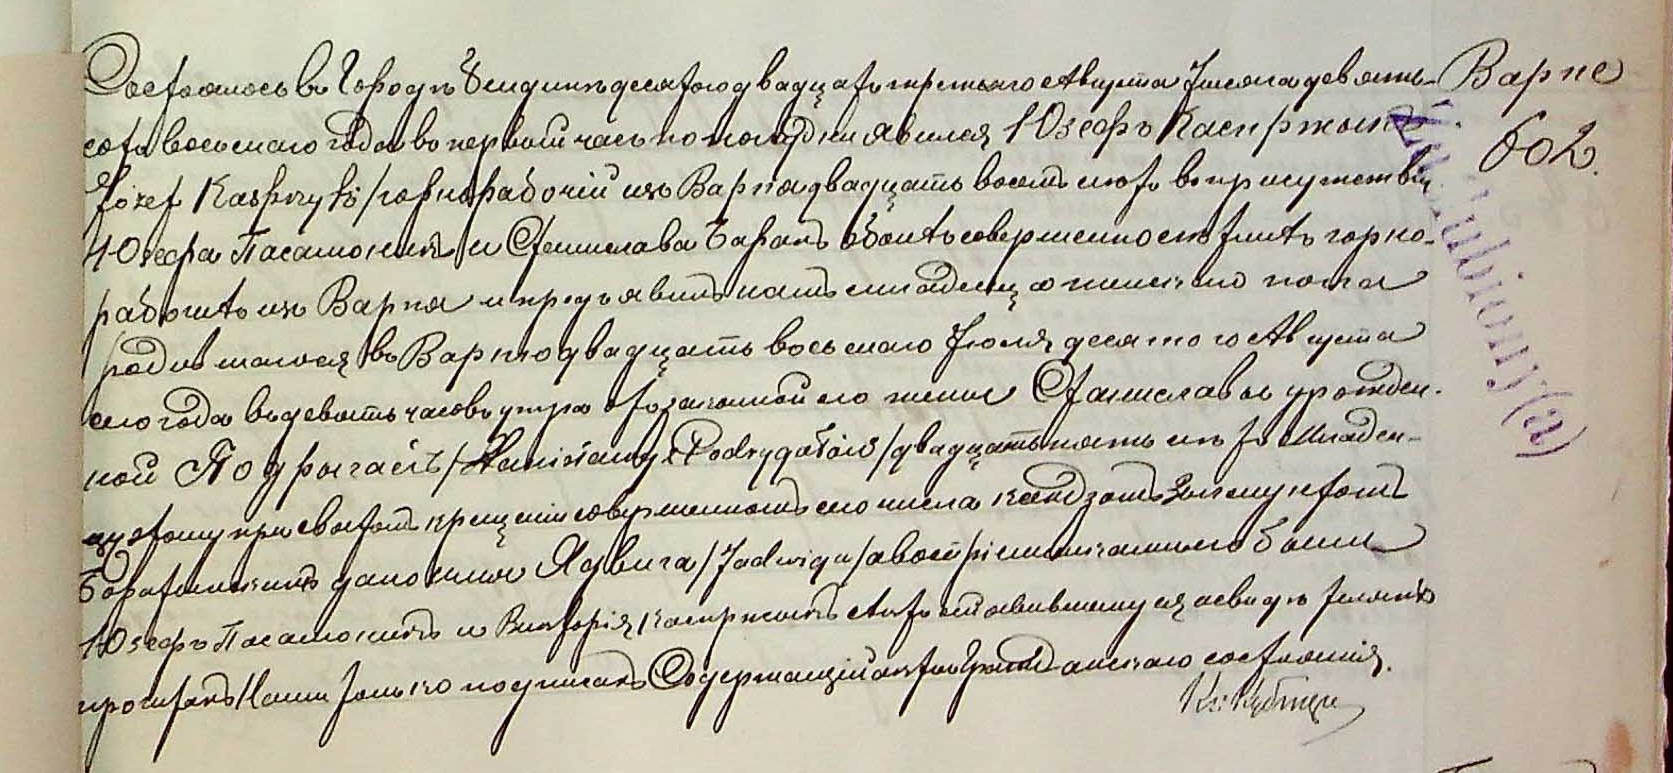 Варпе
602.
Состоялось въ Городѣ Бендинѣ десятого двадцать третьяго Августа тысяча девять-
сотъ восьмаго года въ первый часъ пополудни явился Юзефъ Каспржыкъ
/Józef Kasprzyk/ горнорабочій изъ Варпя двадцать восемь лѣтъ въ присутствіи
Юзефа и Станислава Баранъ обоихъ совершеннолѣтнихъ горно-
рабочихъ изъ Варпя и предъявилъ намъ младенца женскаго пола
родившагося въ Варпю двадцать восьмаго Іюля десятого Августа
сего года въ девять часовъ утра отъ законной его жены Станиславы урожден-
ной Подрыгалъ /Stanisławy z Podrygałów/ двадцать пять лѣтъ Младен-
цу этому при святомъ крещеніи совершенномъ сего числа ксендзомъ Зыгмунтомъ
дано имя Ядвига /Jadwiga/ а воспріемниками его были
Юзефъ и Викторія Каспржыкъ Актъ сей явившемуся и свидѣтелямъ
прочитанъ Нами только подписанъ Содержащій акты Гражданскаго состоянія.
Кс:
ślubiony(a)